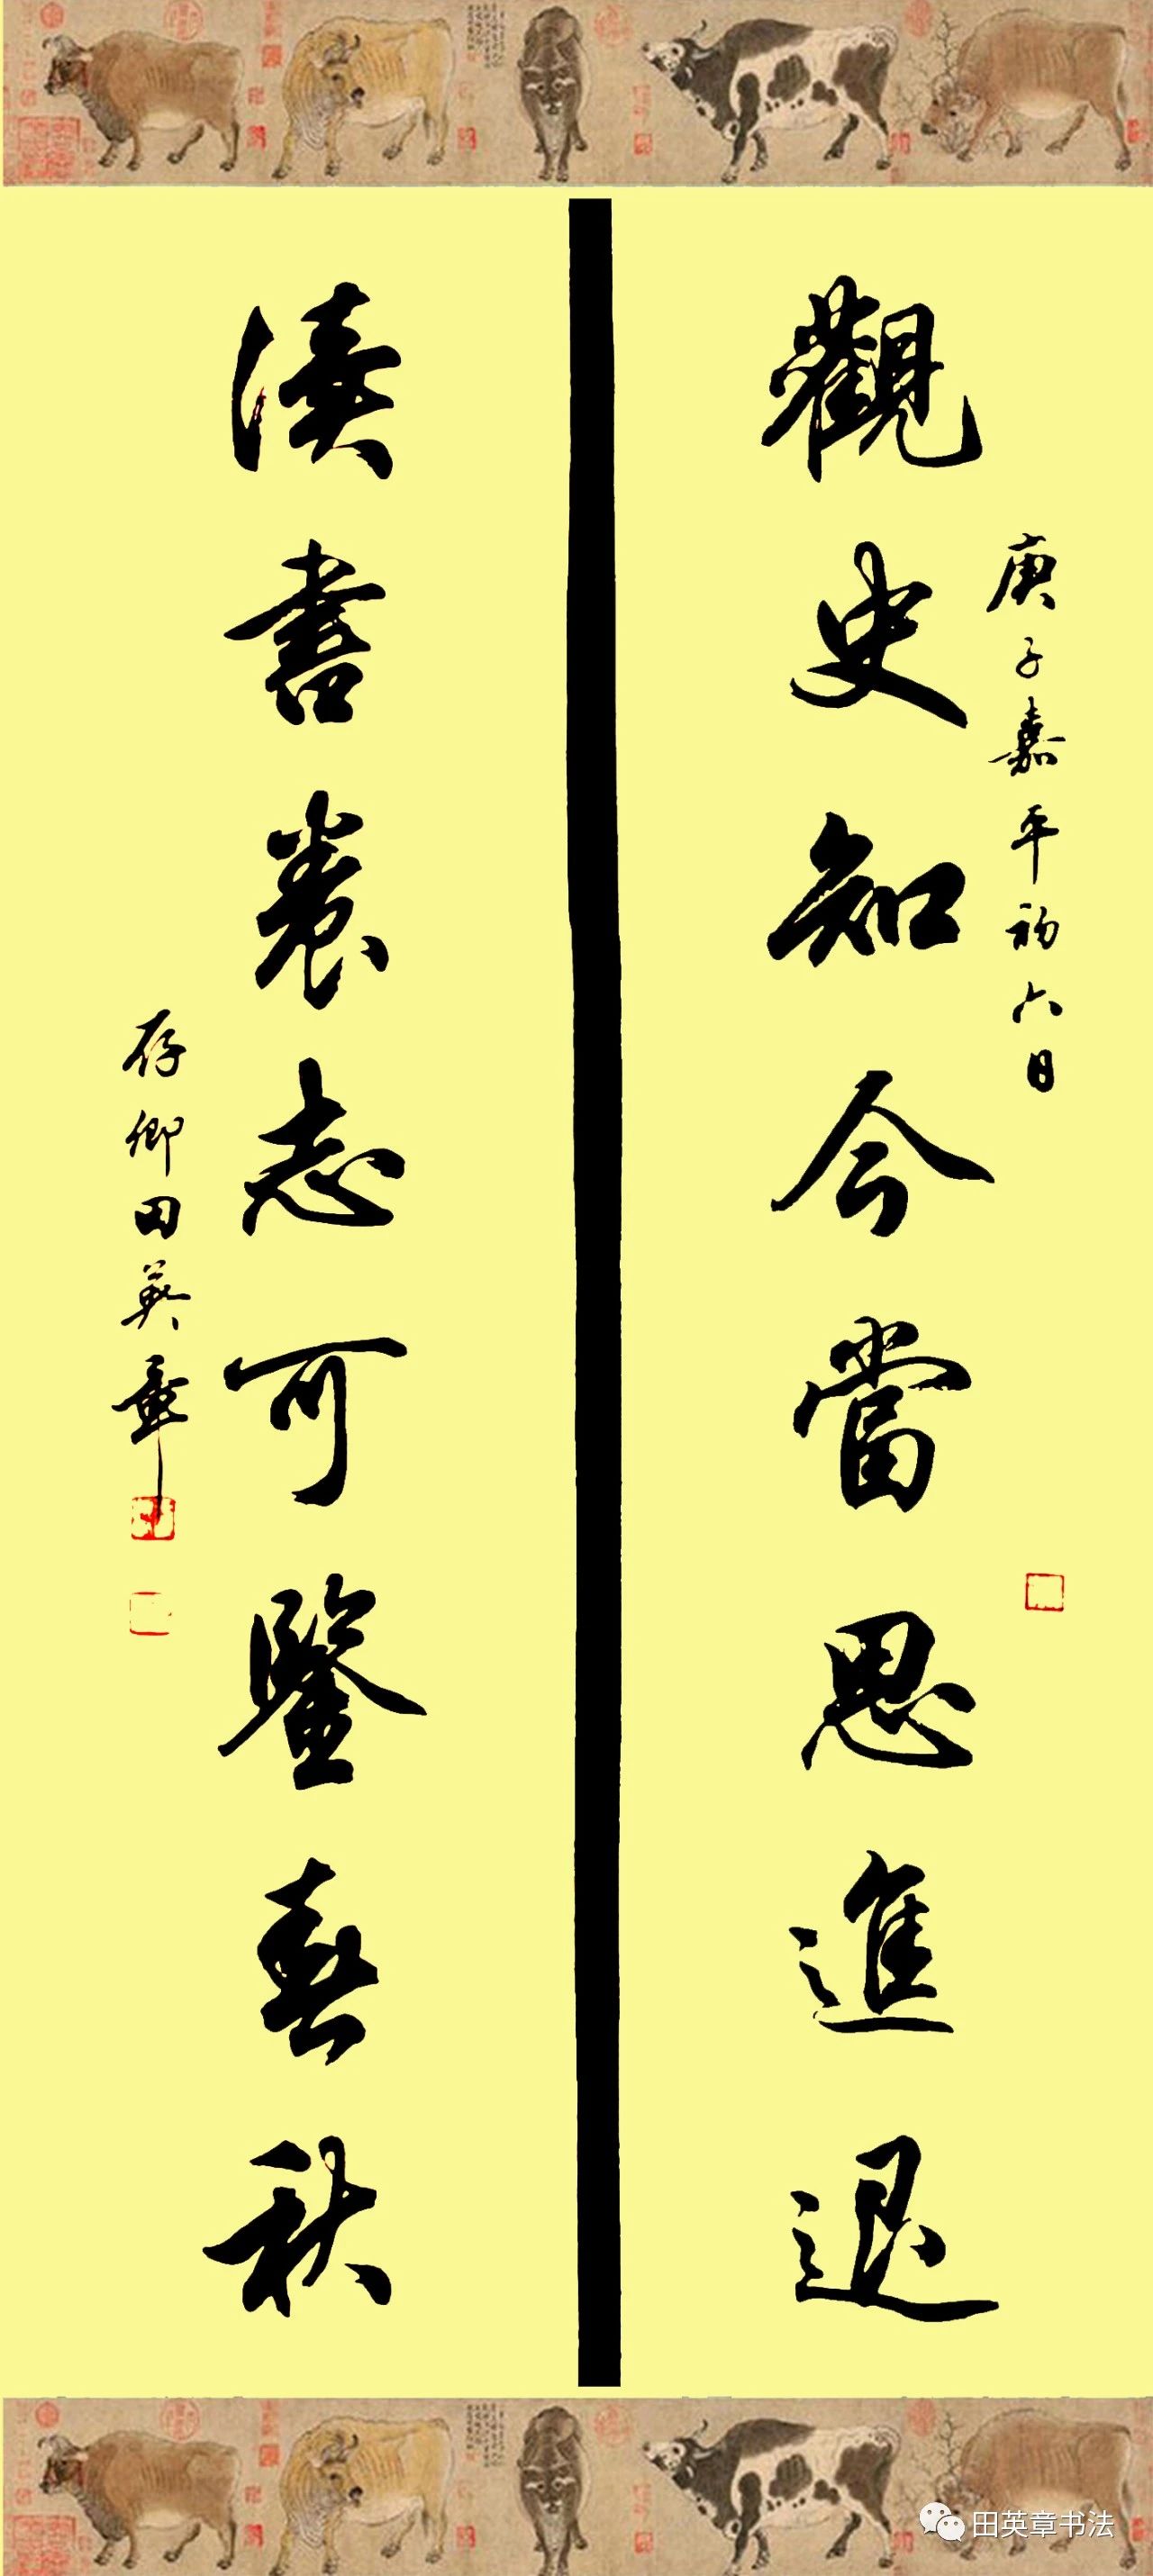 庚子嘉平初六日
觀史知今當思進退
讀書養志可鑒春秋
存卿田英章
田英章书法